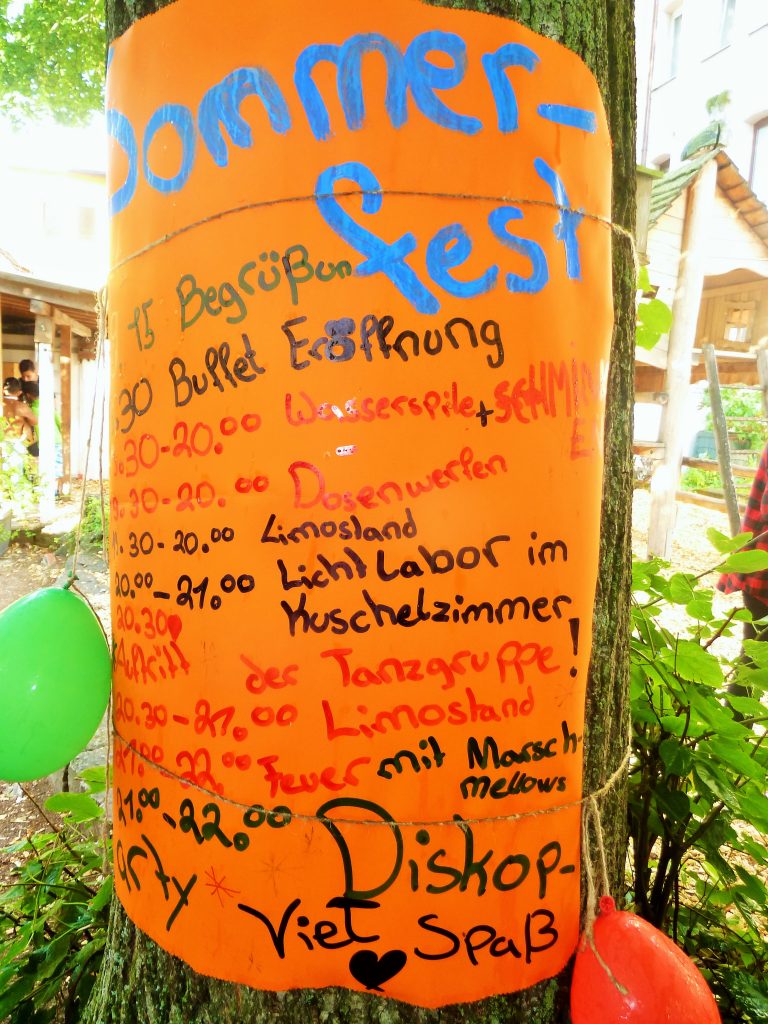 Sommer-
fest
15 Begrüßun
.30 Buffet Eröffnung
.30-20.00 Wasserspile + SCHMIN
.30-20.00 Dosenwerfen
.30-20.00 Limostand
20.00-21.00 Licht Labor im
Kuschelzimmer
20.30
Auftritt der Tanzgruppe!
20.30-21.00 Limostand
21.00-22.00 Feuer mit Marsch-
mellows
21.00-22.00 Diskop-
arty
Viel Spaß